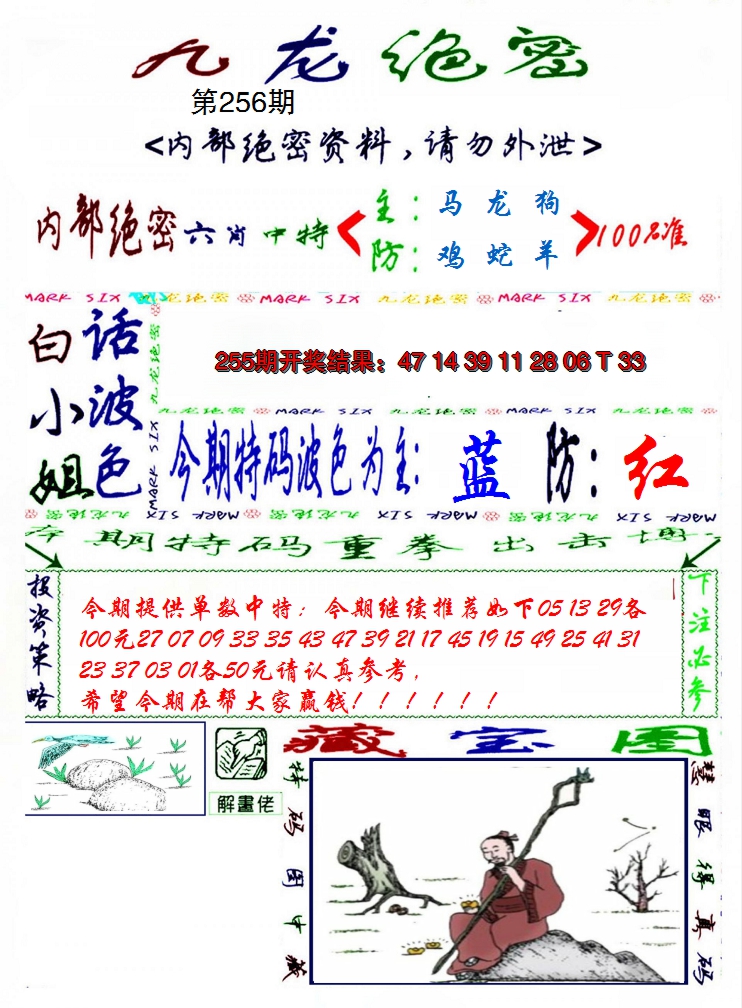 九龙绝密
第256期
<内部绝密资料,请勿外泄>
内部绝密六肖中特
主:马 龙 狗
防:鸡 蛇 羊
100%准
MARK SIX 九龙绝密 MARK SIX 九龙绝密 MARK SIX 九龙绝密
九龙绝密 MARK SIX
白小姐
话波色
255期开奖结果:47 14 39 11 28 06 T 33
九龙绝密 MARK SIX 九龙绝密 MARK SIX 九龙绝密
今期特码波色为主:蓝 防:红
九龙绝密 MARK SIX 九龙绝密 MARK SIX 九龙绝密 MARK SIX
本期特码重拳出击博
投资策略
今期提供单数中特:今期继续推荐如下05 13 29各
100元27 07 09 33 35 43 47 39 21 17 45 19 15 49 25 41 31
23 37 03 01各50元请认真参考,
希望今期在帮大家赢钱!!!!!!
下注必参
解畫佬
藏宝图
特码图中藏
慧眼得真码